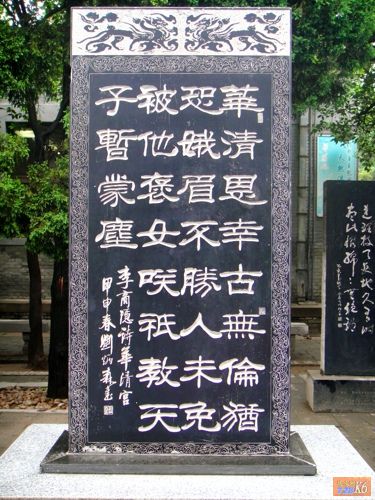 華清恩幸古無倫猶
恐蛾眉不勝人未免
被他褒女咲祇教天
子暫蒙塵
李商隐詩華清宮
甲申春劉炳森書
K6